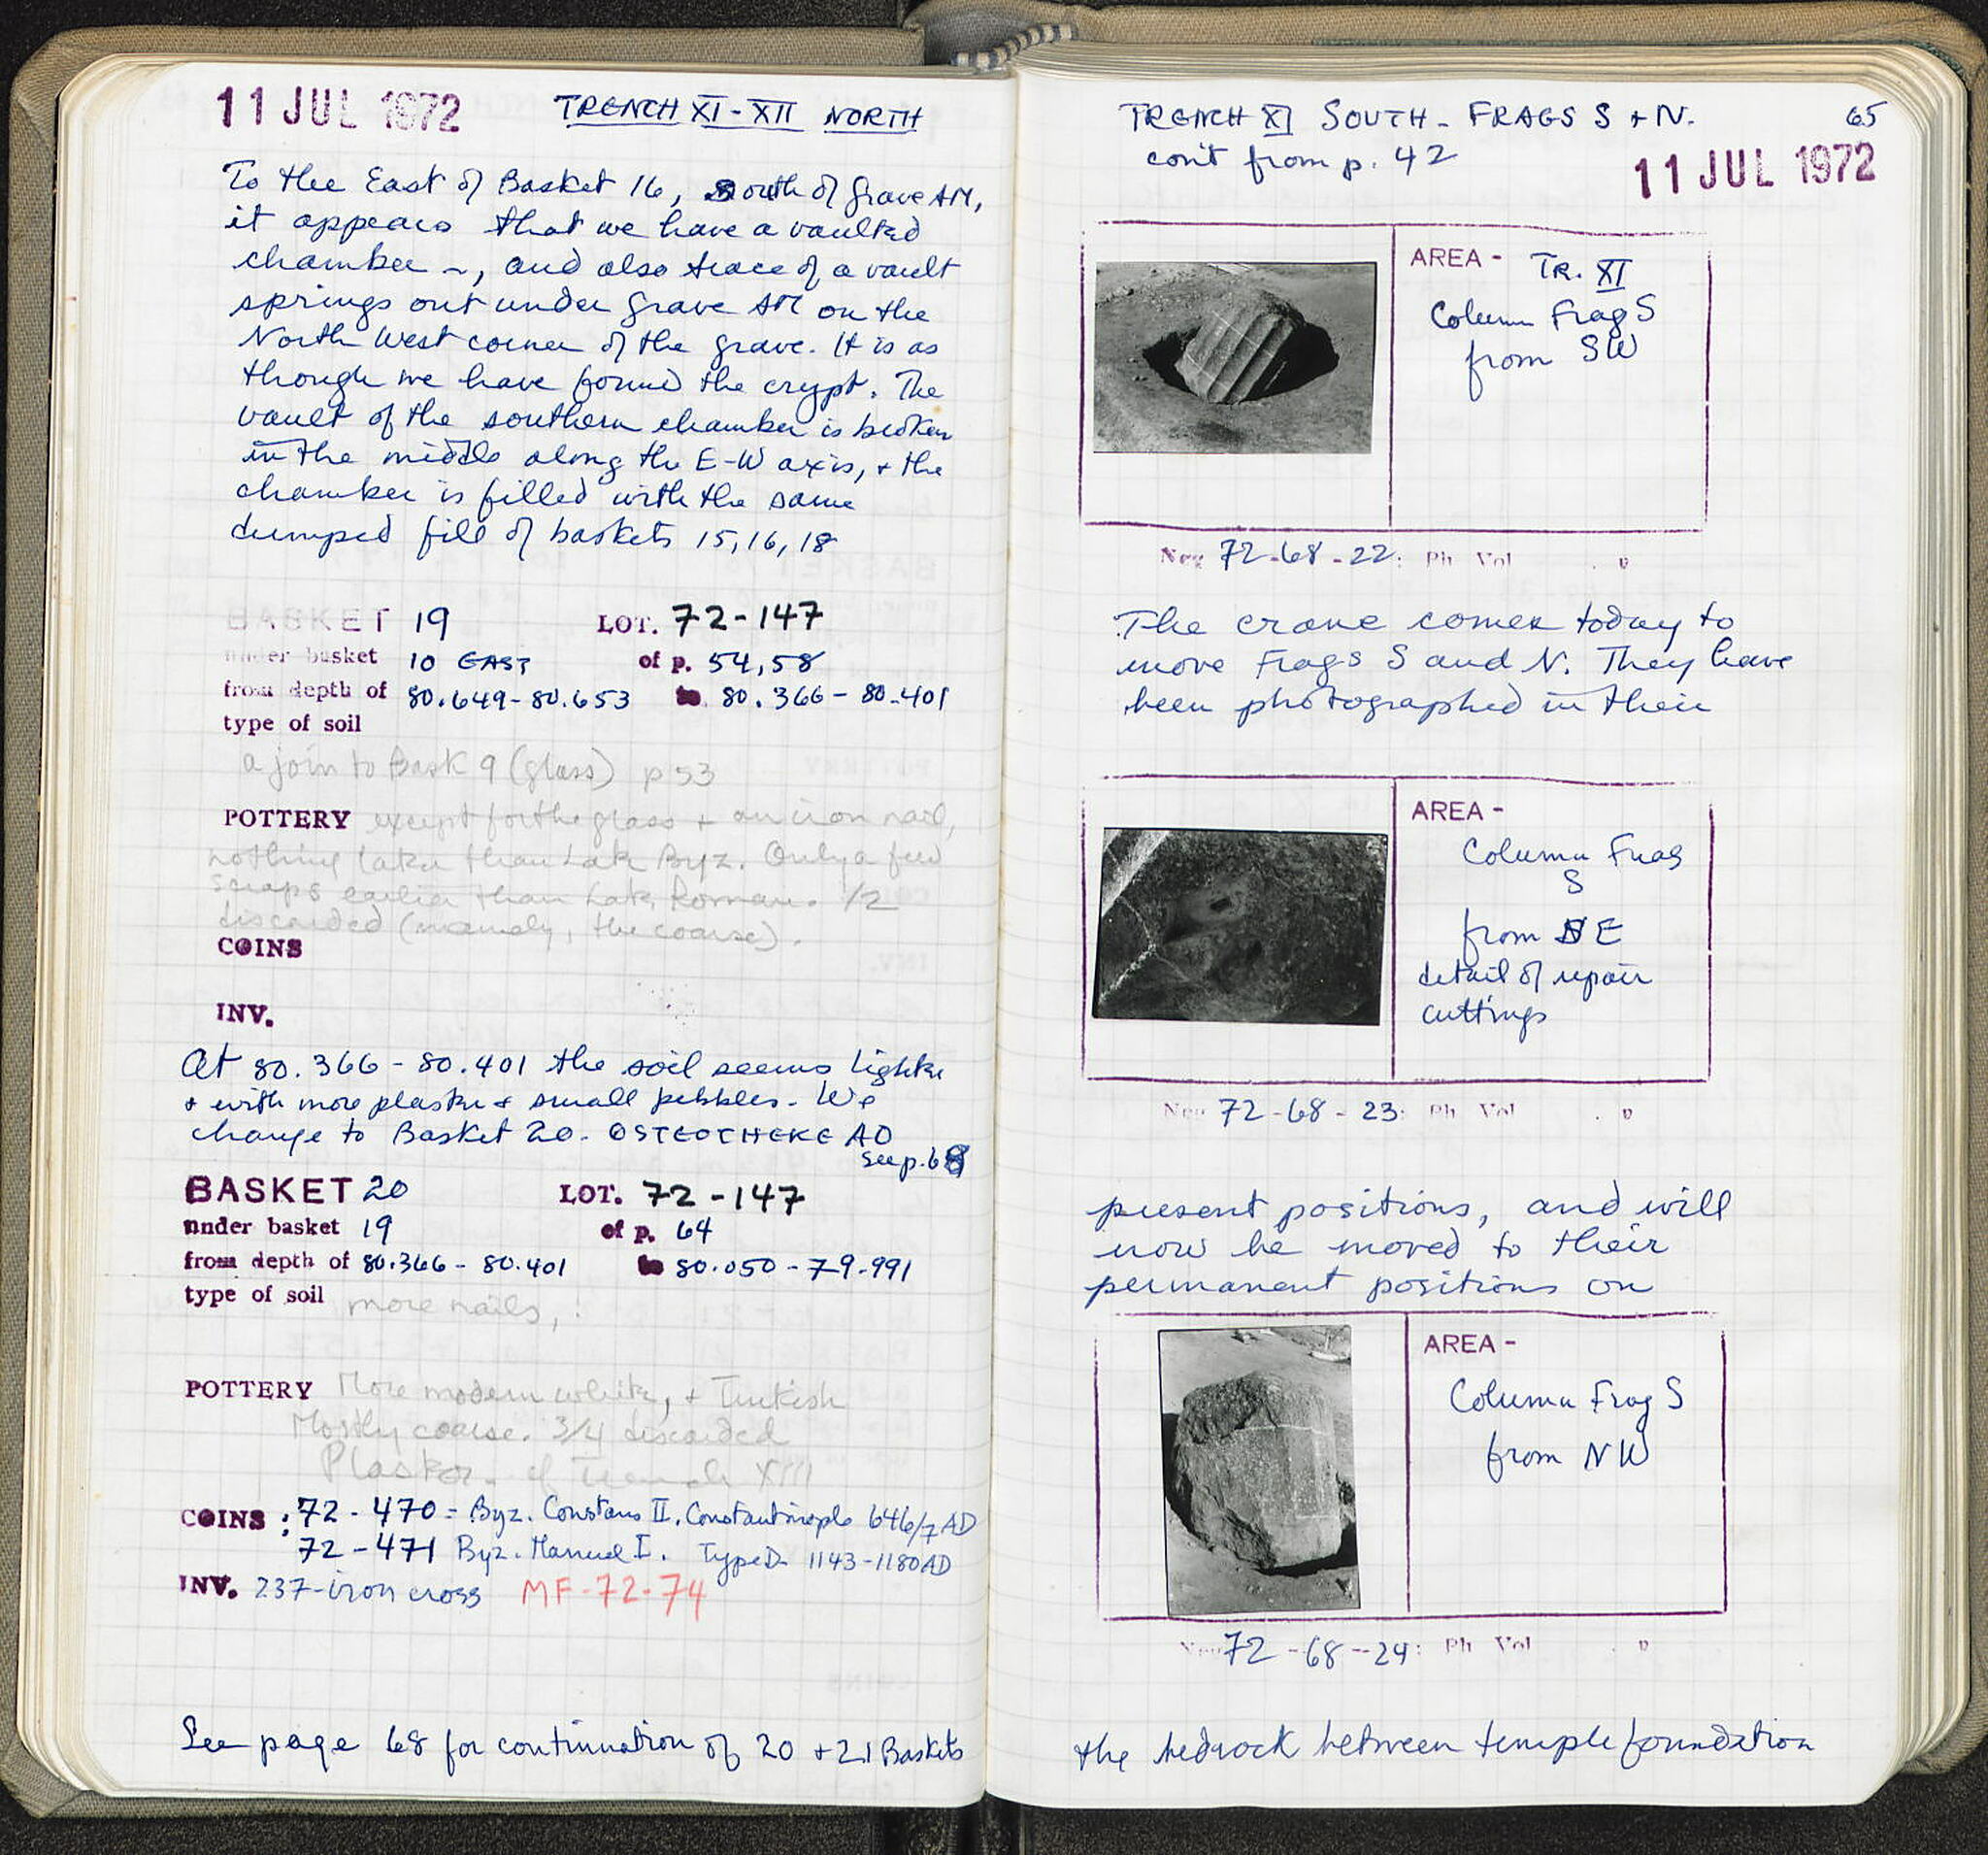 11 JUL 1972 TRENCH XI-XII NORTH
To the East of Basket 16, South of Grave AM,
it appears that we have a vaulted
chamber ~, and also trace of a vault
springs out under Grave AM on the
North West corner of the grave. It is as
though we have found the crypt. The
vault of the southern chamber is broken
in the middle along the E-W axis, + the
chamber is filled with the same
dumped fill of baskets 15, 16, 18
BASKET 19 LOT. 72-147
under basket 10 EAST of p. 54,58
from depth of 80.649-80.653 to 80.366-80.401
type of soil
a join to Bask 9 (glass) p 53
POTTERY except for the glass + an iron nail,
nothing later than Late Byz. Only a few
scraps earlier than Late Roman. 1/2
discarded (mainly, the coarse).
COINS
INV.
At 80.366-80.401 the soil seems lighter
+ with more plaster + small pebbles. We
change to Basket 20. OSTEOTHEKE AO
See p. 68
BASKET 20 LOT. 72-147
under basket 19 of p. 64
from depth of 80.366-80.401 to 80.050-79.991
type of soil more nails,
POTTERY More modern white, + Turkish
Mostly coarse. 3/4 discarded
Plaster - cf Trench XIII
COINS : 72-470 = Byz. Constans II. Constantinople 646/7 AD
72-471 Byz. Manuel I. Type D 1143-1180 AD
INV. 237-iron cross MF-72-74
See page 68 for continuation of 20 + 21 Baskets
TRENCH XI SOUTH - FRAGS S + N. 65
con't from p. 42
11 JUL 1972
AREA - TR. XI
Column Frag S
from SW
Neg 72-68-22: Ph Vol . p
The crane comes today to
move Frags S and N. They have
been photographed in their
AREA -
Column Frag
S
from E
detail of repair
cuttings
Neg 72-68-23: Ph Vol . p
present positions, and will
now be moved to their
permanent positions on
AREA -
Column Frag S
from NW
Neg 72-68-24: Ph Vol . p
the bedrock between temple foundation